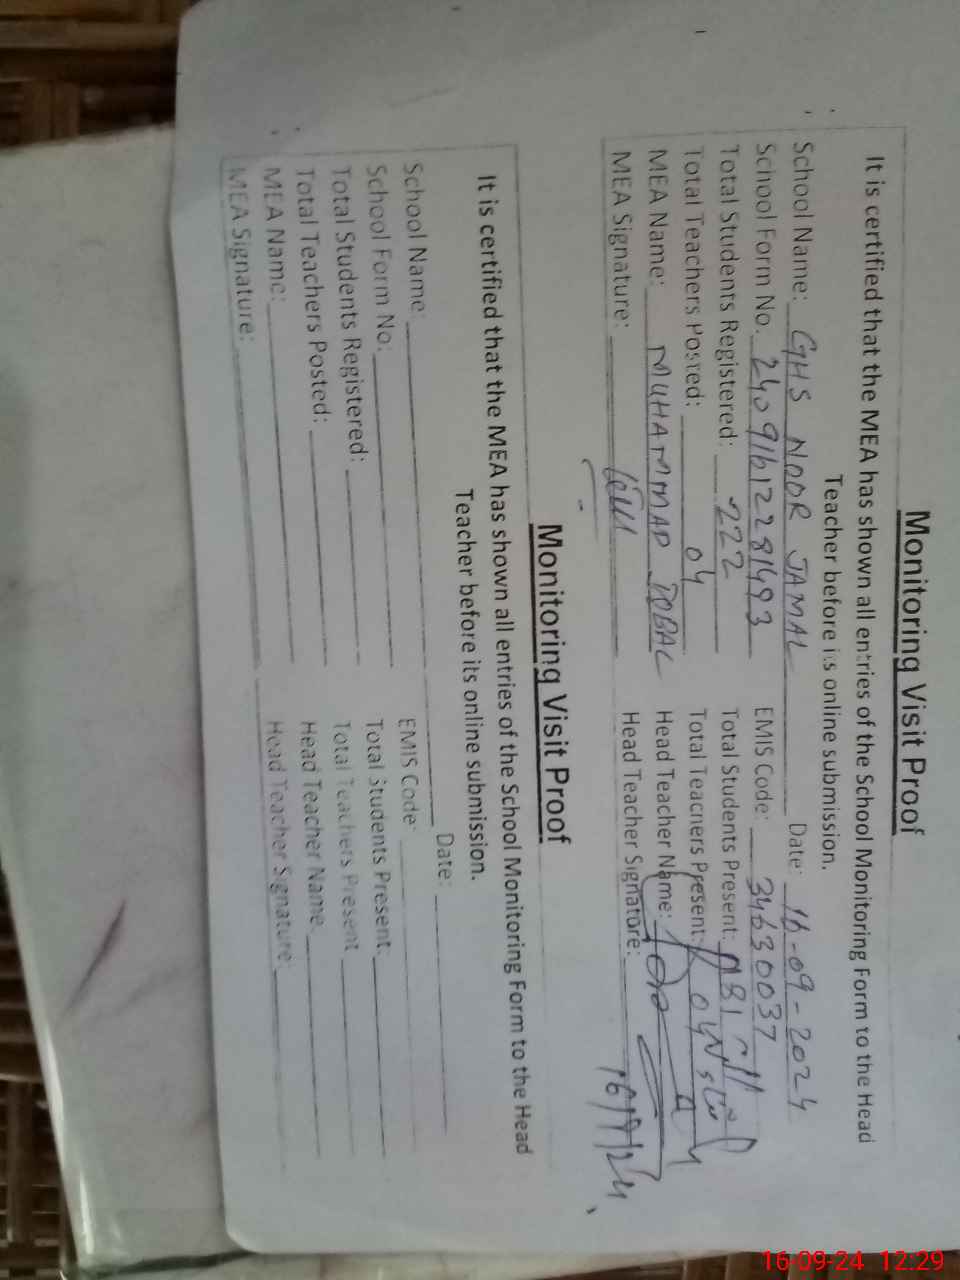 Monitoring Visit Proof
It is certified that the MEA has shown all entries of the School Monitoring Form to the Head
Teacher before its online submission.
School Name: GHS NOOR JAMAL Date: 16-09-2024
School Form No. 24091612281493 EMIS Code: 34630037
Total Students Registered: 222 Total Students Present: 181
Total Teachers Posted: 04 Total Teachers Present: 04
MEA Name: MUHAMMAD IQBAL Head Teacher Name:
MEA Signature: Head Teacher Signature:
16/9/24
Monitoring Visit Proof
It is certified that the MEA has shown all entries of the School Monitoring Form to the Head
Teacher before its online submission.
School Name: Date:
School Form No: EMIS Code:
Total Students Registered: Total Students Present:
Total Teachers Posted: Total Teachers Present
MEA Name: Head Teacher Name
MEA Signature: Head Teacher Signature:
16-09-24 12:29